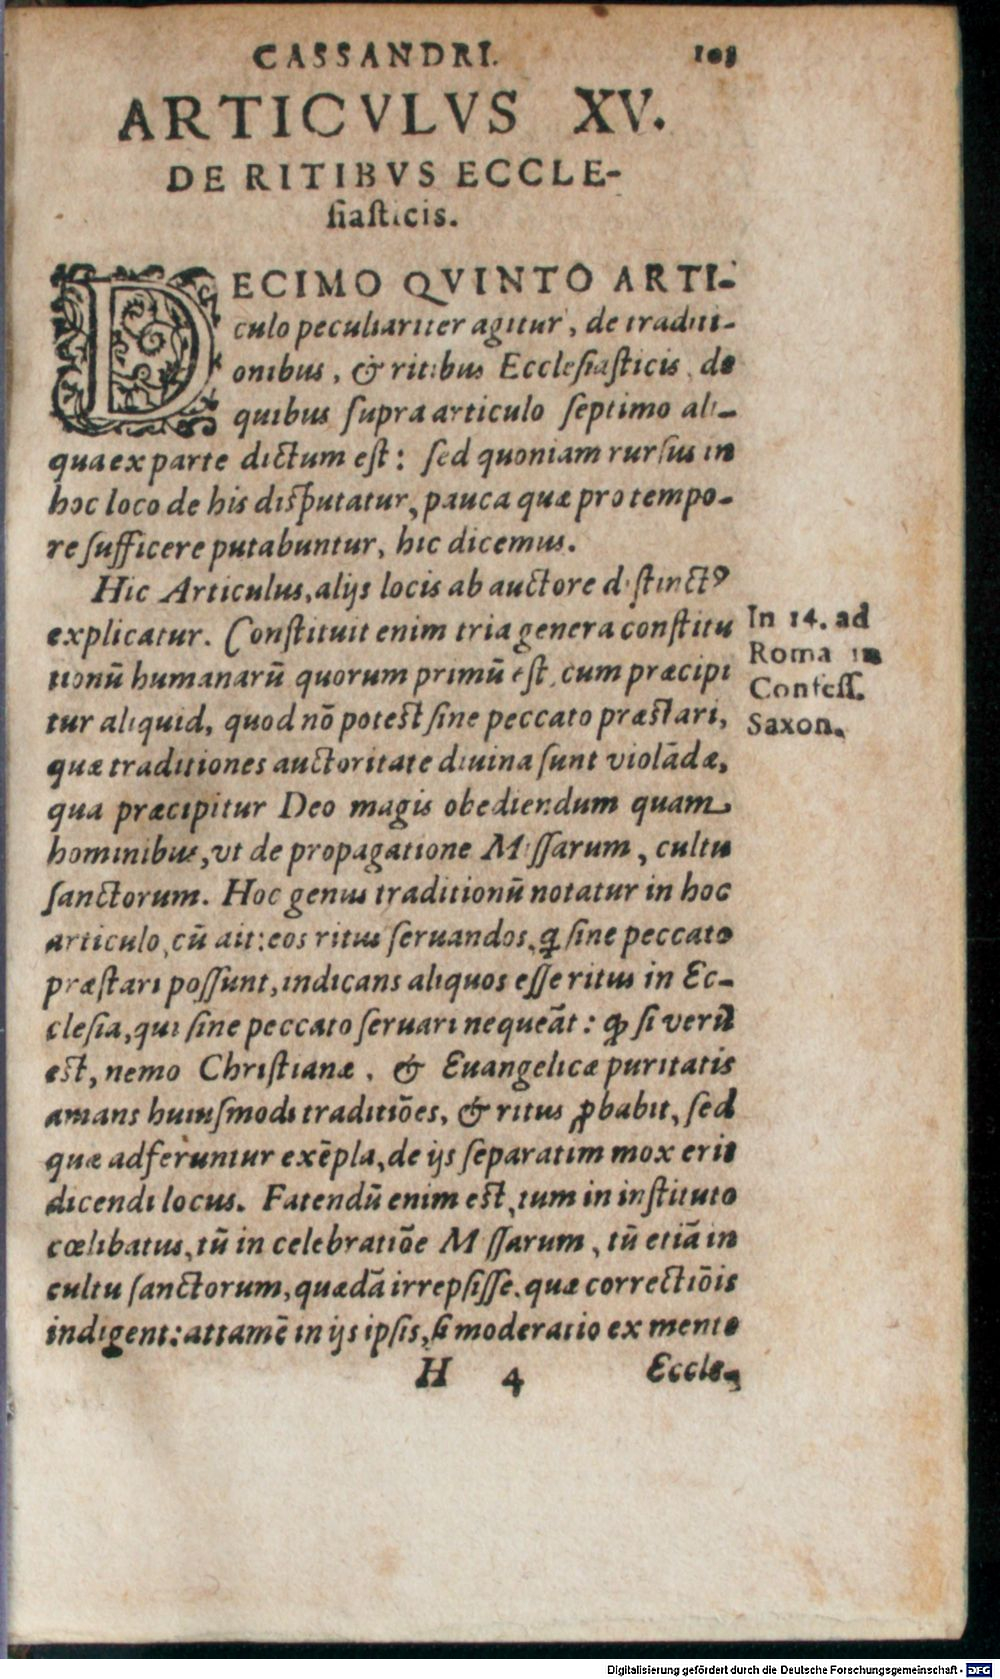 CASSANDRI. 103
ARTICVLVS XV.
DE RITIBVS ECCLE-
siasticis.
DECIMO QVINTO ARTI-
culo peculiariter agitur, de traditi-
onibus, & ritibus Ecclesiasticis, de
quibus supra articulo septimo ali-
qua ex parte dictum est: sed quoniam rursus in
hoc loco de his disputatur, pauca quæ pro tempo-
re sufficere putabuntur, hic dicemus.
Hic Articulus, alijs locis ab auctore distinctꝰ
explicatur. Constituit enim tria genera constitu
tionū humanarū quorum primū est, cum præcipi
tur aliquid, quod nō potest sine peccato præstari,
quæ traditiones auctoritate diuina sunt violādæ,
qua præcipitur Deo magis obediendum quam
hominibus, vt de propagatione Missarum, cultu
sanctorum. Hoc genus traditionū notatur in hoc
articulo, cū ait: eos ritus seruandos, q̄ sine peccato
præstari possunt, indicans aliquos esse ritus in Ec-
clesia, qui sine peccato seruari nequeāt: qđ si verū
est, nemo Christianæ, & Euangelicæ puritatis
amans huiusmodi traditiōes, & ritus ꝓbabit, sed
quæ adferuntur exēpla, de ijs separatim mox erit
dicendi locus. Fatendū enim est, tum in instituto
cœlibatus, tū in celebratiōe Missarum, tū etiā in
cultu sanctorum, quædā irrepsisse, quæ correctiōis
indigent: attamē in ijs ipsis, si moderatio ex mente
H 4 Eccle-
In 14. ad
Roma in
Confess.
Saxon.
Digitalisierung gefördert durch die Deutsche Forschungsgemeinschaft - DFG